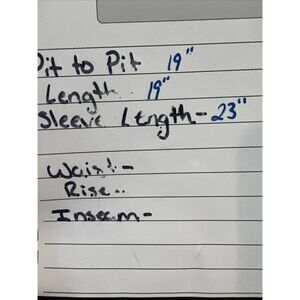 Pit to Pit 19"
Length 19"
Sleeve Length- 23"
Waist-
Rise-
Inseam-